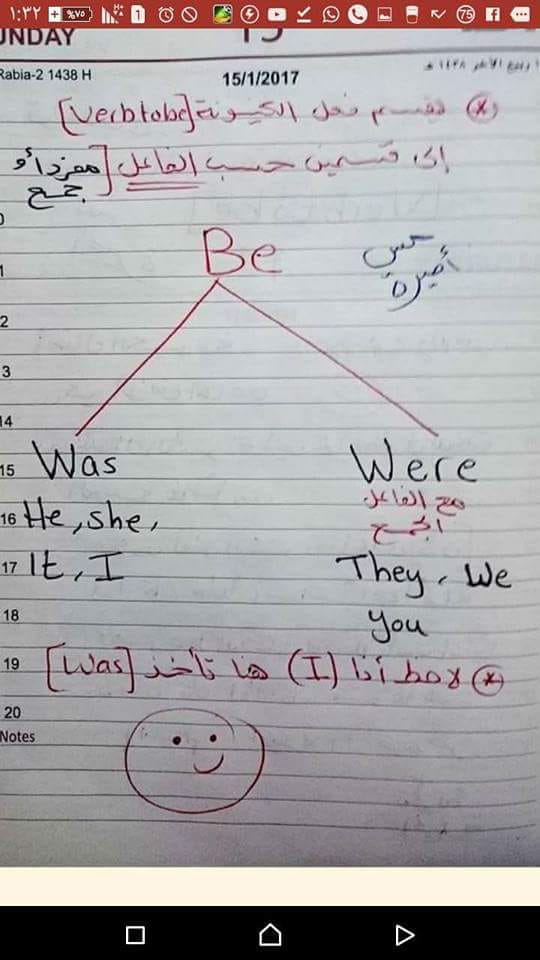 ١:٢٢
%٧٥
1
75
SUNDAY
15
Rabia-2 1438 H
15/1/2017
ربيع الآخر ١٤٣٨ هـ
* نقسم فعل الكينونة [Verb tobe]
إلى قسمين حسب الفاعل [مفرد أو
جمع
Be
مس
أميرة
Was
Were
مع الفاعل
الجمع
He, she,
It, I
They, We
you
* لاحظ أنا (I) هنا تأخذ [Was]
11
12
13
14
15
16
17
18
19
20
Notes